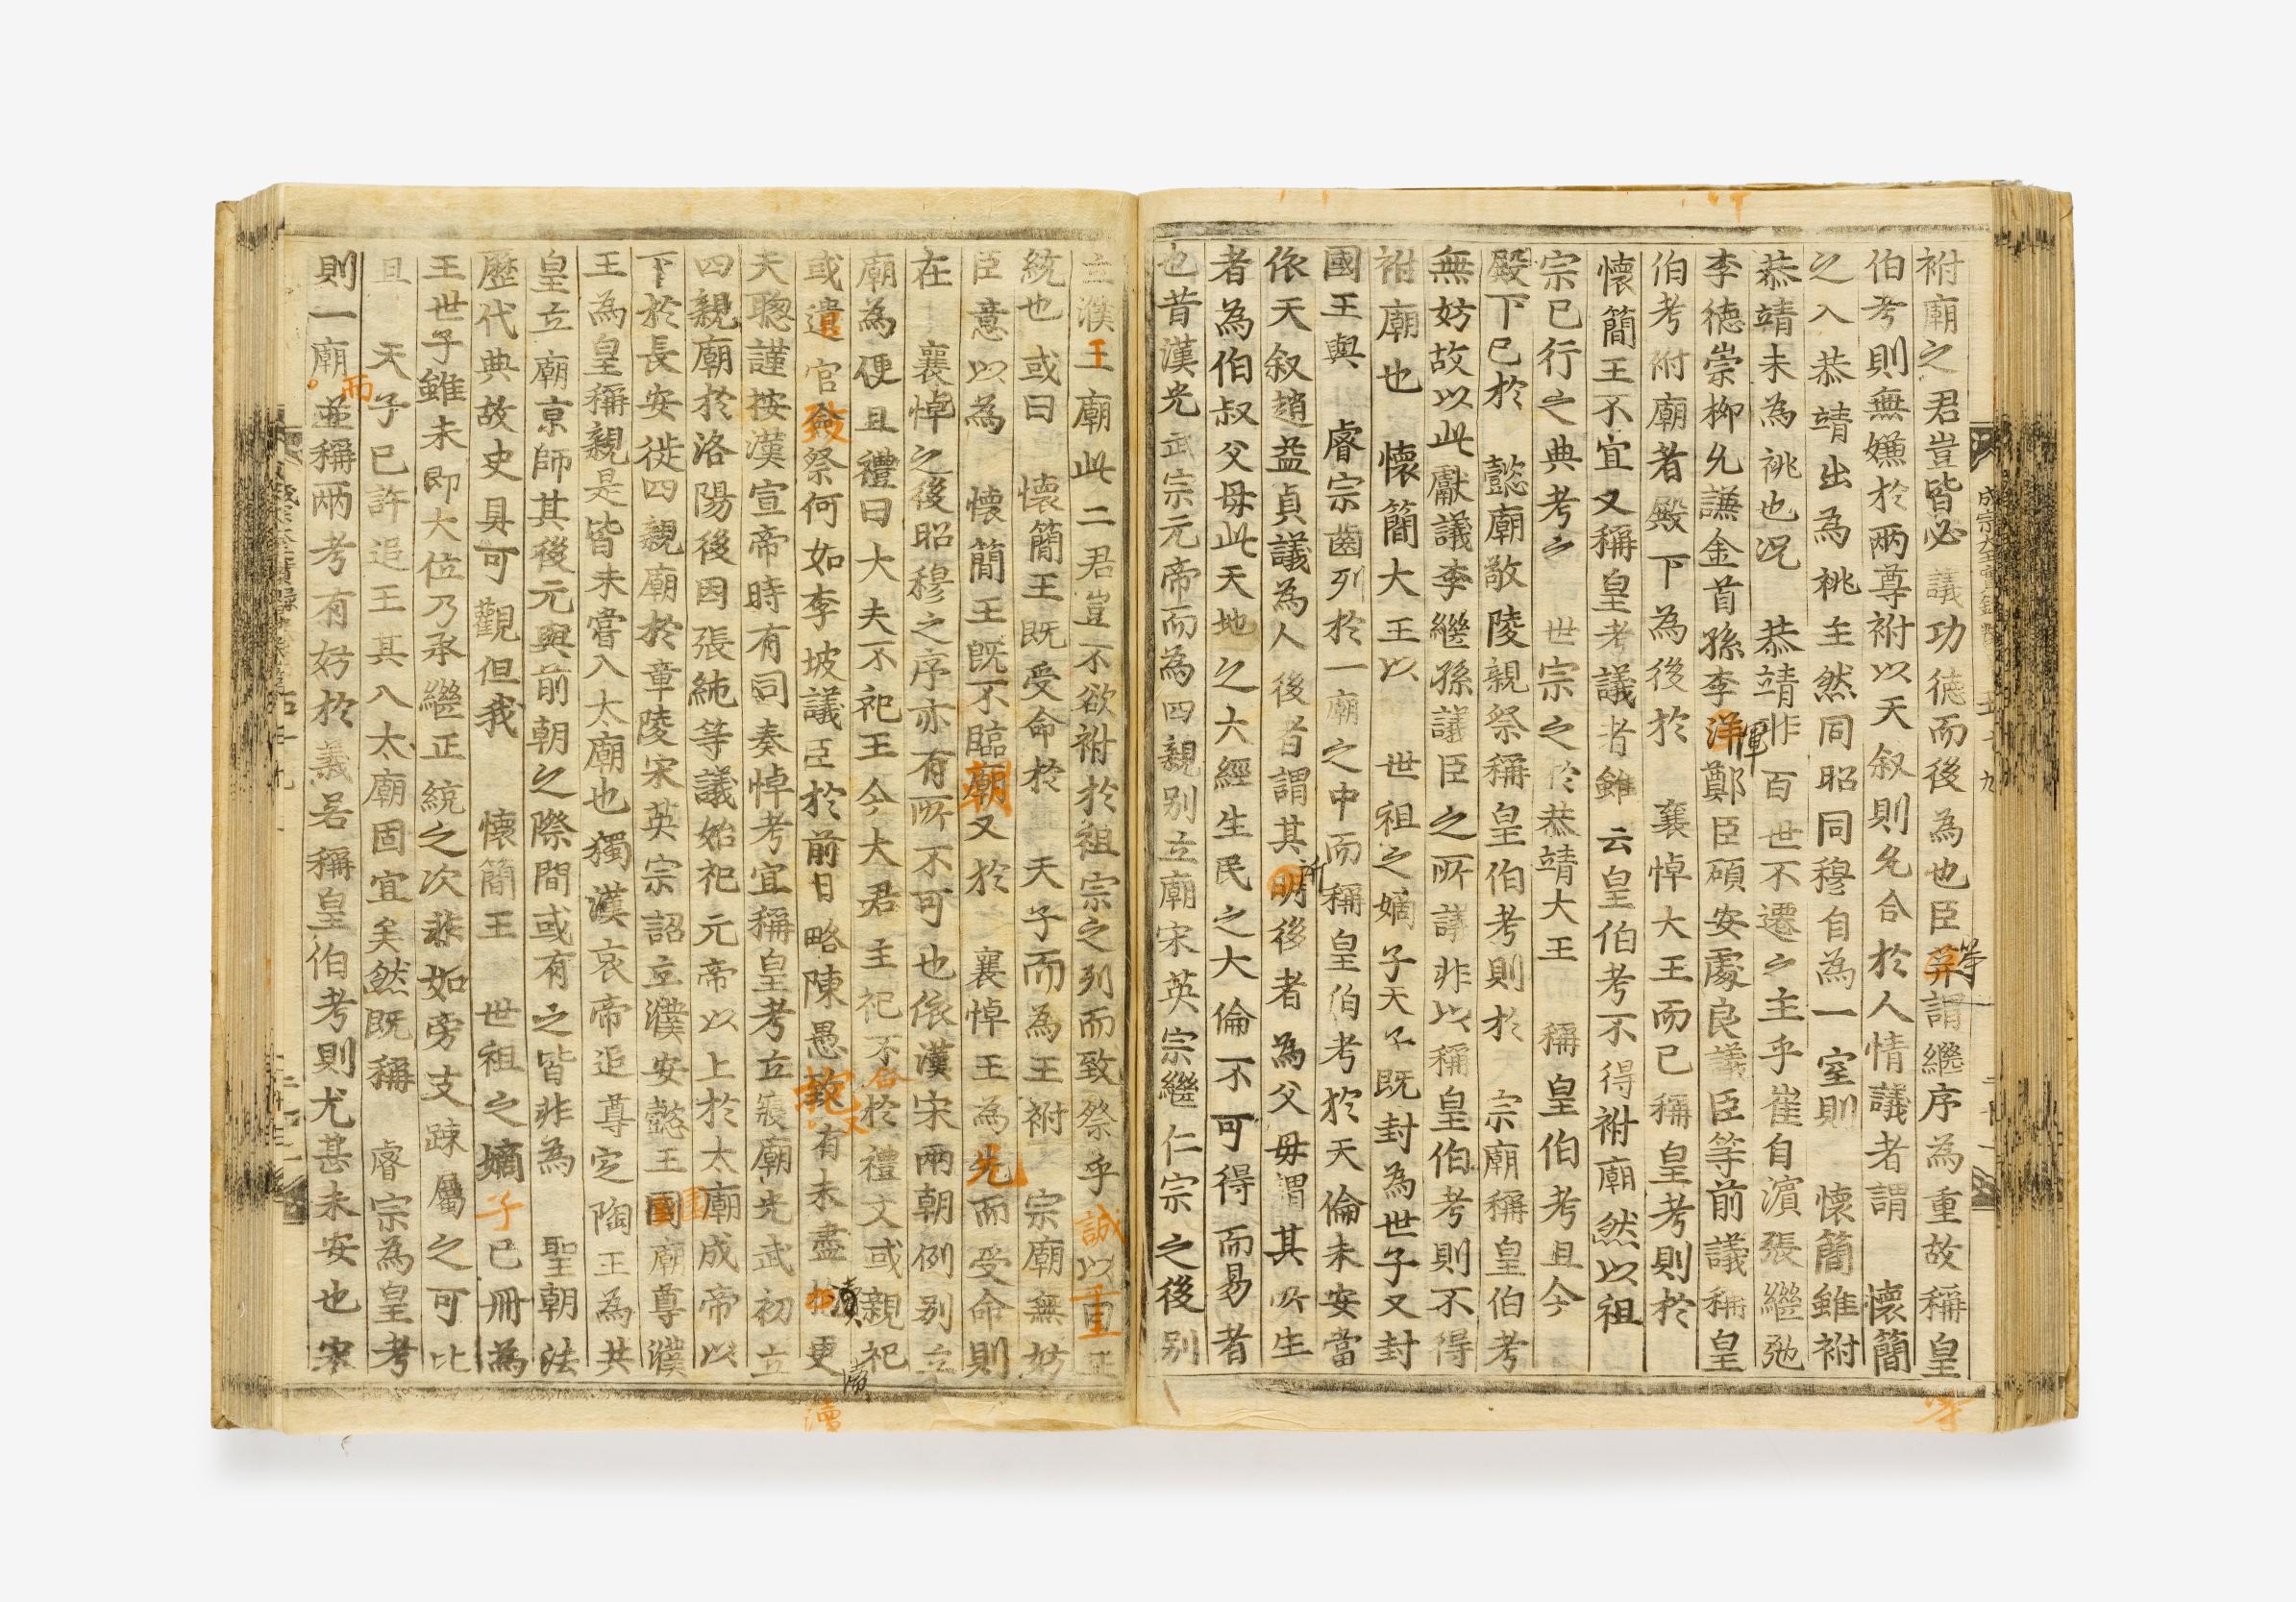 祔廟之君豈皆必議功德而後為也臣荓謂繼序為重故稱皇
等
伯考則無嫌於兩尊祔以天叙則允合於人情議者謂 懷簡
之入 恭靖出為祧主然同昭同穆自為一室則 懷簡雖祔
恭靖未為祧也况 恭靖非百世不遷之主乎崔自濵張繼弛
李德崇柳允謙金首孫李洋鄭臣碩安處良議臣等前議稱皇
渾
伯考祔廟者殿下為後於 襄悼大王而已稱皇考則於
懷簡王不宜又稱皇考議者雖云皇伯考不得祔廟然以祖
宗已行之典考之 世宗之於恭靖大王 稱皇伯考且今
殿下已於 懿廟敬陵親祭稱皇伯考則於 宗廟稱皇伯考
無妨故以此獻議李繼孫議臣之所議非以稱皇伯考則不得
祔廟也 懷簡大王以 世祖之嫡子天子既封為世子又封
國王與 睿宗齒列於一廟之中而稱皇伯考於天倫未安當
依天叙趙益貞議為人後者謂其明後者為父母謂其所生
所
者為伯叔父母此天地之大經生民之大倫不可得而易者
也昔漢光武宗元帝而為四親别立廟宋英宗繼仁宗之後别
立濮王廟此二君豈不欲祔於祖宗之列而致祭乎誠以重正
統也或曰 懷簡王既受命於 天子而為王祔 宗廟無妨
臣意以為 懷簡王既不臨廟又於 襄悼王為先而受命則
朝
在 襄悼之後昭穆之序亦有所不可也依漢宋兩朝例别立
廟為便且禮曰大夫不祀王今大君主祀不合於禮文或親祀
或遣官命祭何如李坡議臣於前日略陳愚致有未盡 更
瀆
天聰謹按漢宣帝時有司奏悼考宜稱皇考立寢廟光武初立
四親廟於洛陽後因張純等議始祀元帝以上於太廟成帝以
下於長安徙四親廟於章陵宋英宗詔立濮安懿王國廟尊濮
園
王為皇稱親是皆未嘗入太廟也獨漢哀帝追尊定陶王為共
皇立廟京師其後元與前朝之際間或有之皆非為 聖朝法
歷代典故史具可觀但我 懷簡王 世祖之嫡子已冊為
王世子雖未即大位乃承繼正統之次非如旁支踈屬之可比
且 天子已許追王其入太廟固宜矣然既稱 睿宗為皇考
則一廟並稱兩考有妨於義若稱皇伯考則尤甚未安也宋
而